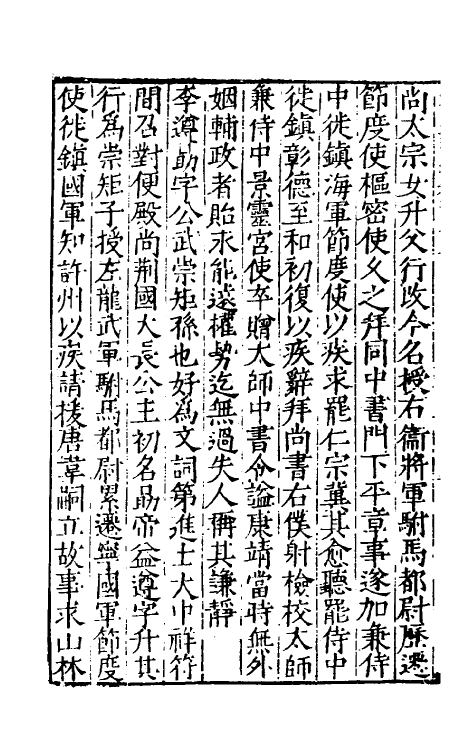 尚太宗女升父行改今名授右衞將軍駙馬都尉歷遷
節度使樞密使久之拜同中書門下平章事遂加兼侍
中徙鎮海軍節度使以疾求罷仁宗冀其愈聽罷侍中
徙鎮彰德至和初復以疾辭拜尚書右僕射檢校太師
兼侍中景靈宮使卒贈太師中書令謚康靖當時無外
姻輔政者貽永能遠權勢迄無過失人稱其謙靜
李遵勗字公武崇矩孫也好為文詞第進士大中祥符
間召對便殿尚荆國大長公主初名勗帝益遵字升其
行為崇矩子授左龍武軍駙馬都尉累遷寧國軍節度
使徙鎮國軍知許州以疾請援唐韋嗣立故事求山林